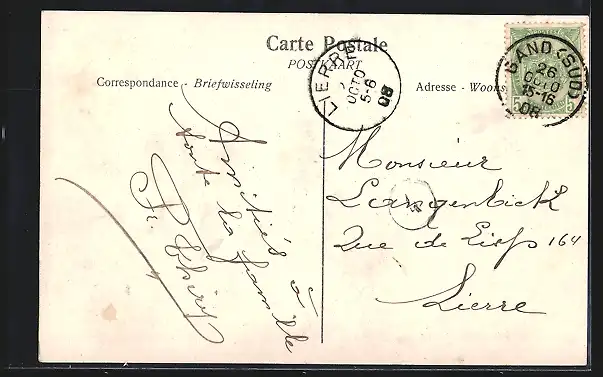 Carte Postale
POSTKAART
Correspondance - Briefwisseling
Adresse - Woons
LIERRE
OCTO
5-6
08
GAND (SUD)
26
OCTO
15-16
08
5 5
Amitiés à
toute la famille
Fr. Thiry
Monsieur
Langenbick
Rue de Lisp 164
Lierre